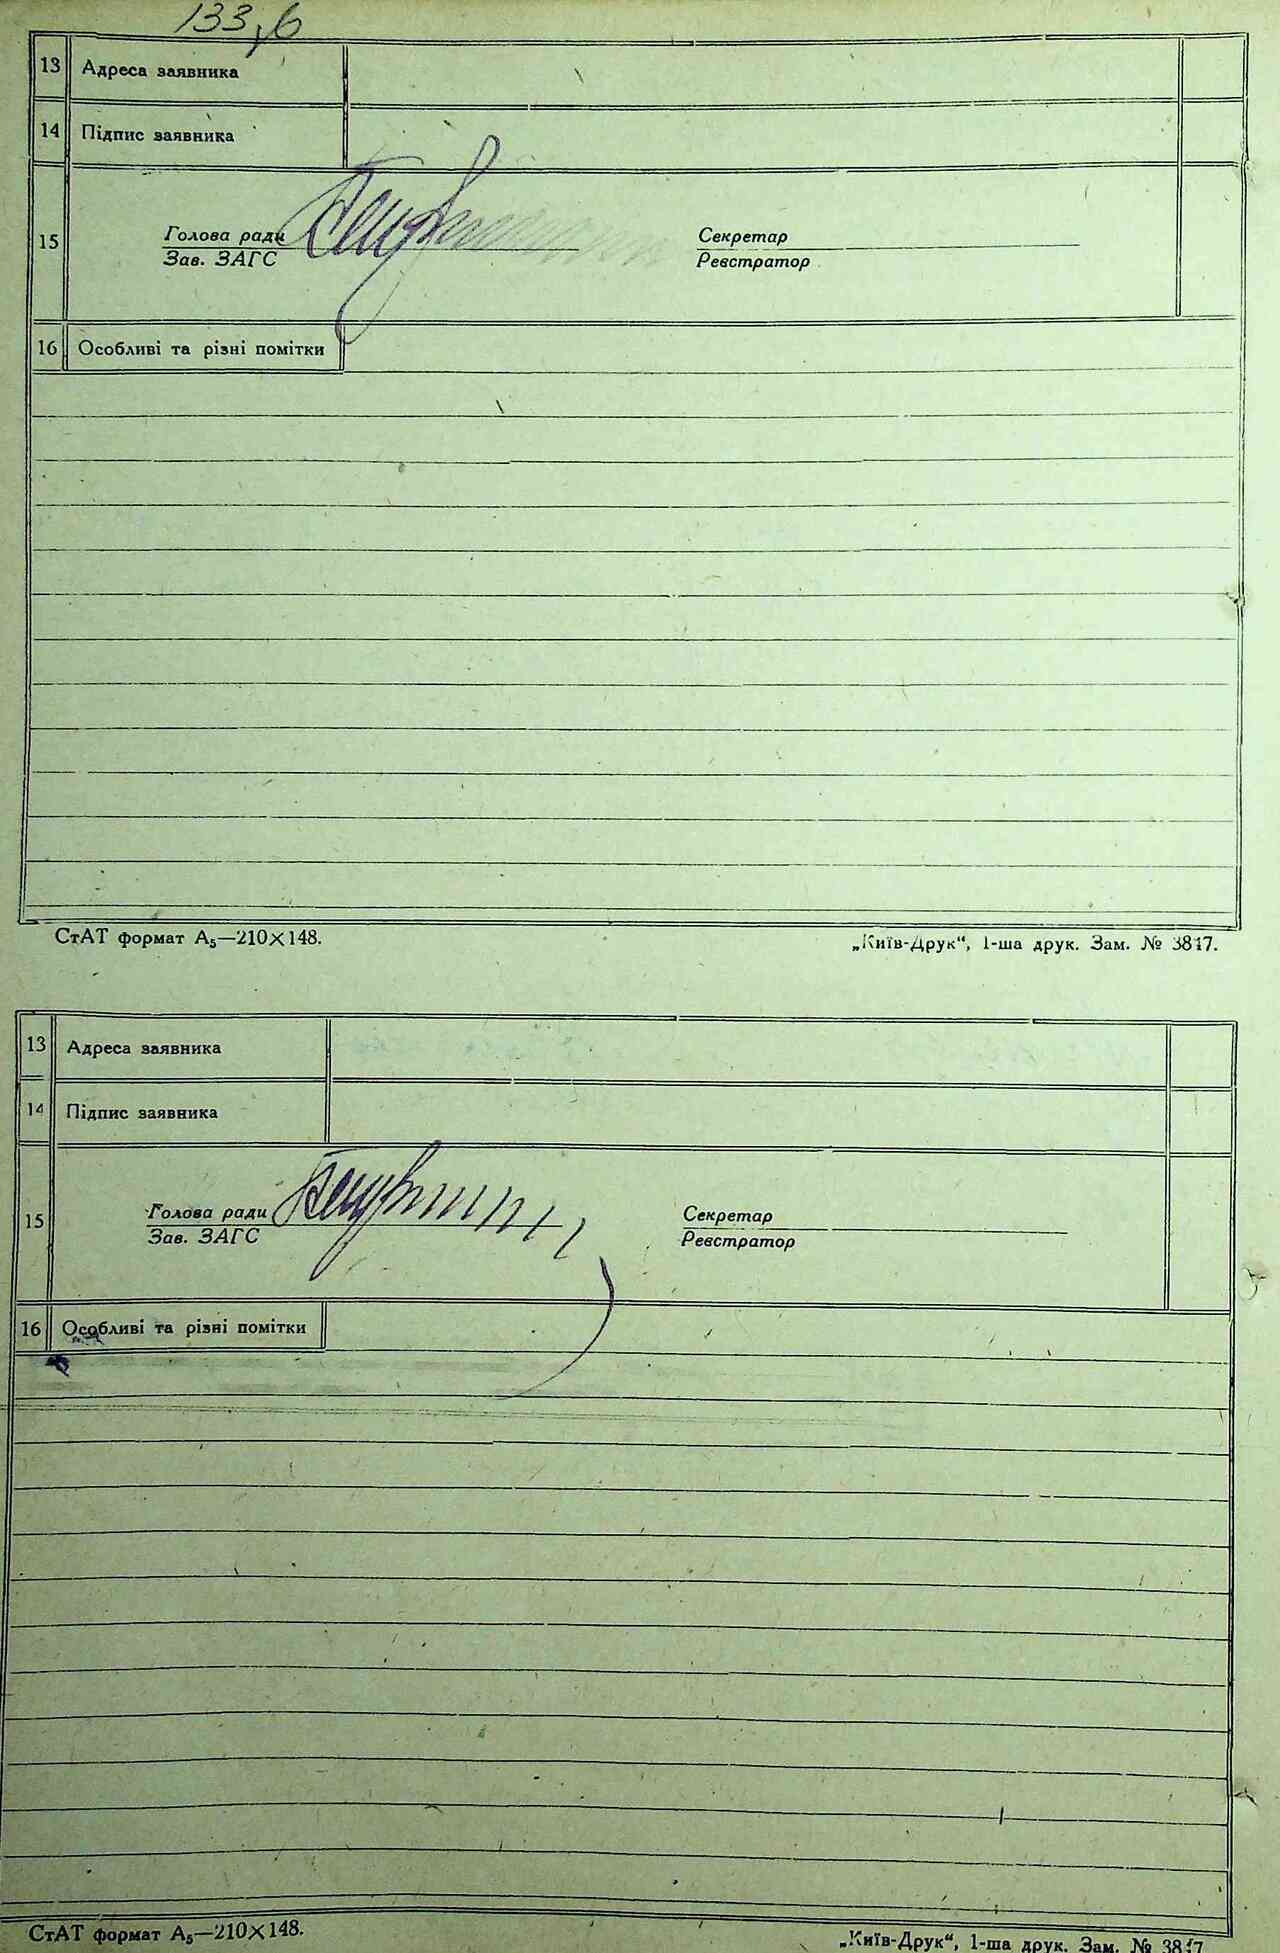 133,б
13 Адреса заявника
14 Підпис заявника
15 Голова ради Секретар
Зав. ЗАГС Реєстратор
16 Особливі та різні помітки
СтАТ формат А₅—210×148. „Київ-Друк“, 1-ша друк. Зам. № 3817.
13 Адреса заявника
14 Підпис заявника
15 Голова ради Секретар
Зав. ЗАГС Реєстратор
16 Особливі та різні помітки
СтАТ формат А₅—210×148. „Київ-Друк“, 1-ша друк. Зам. № 3817